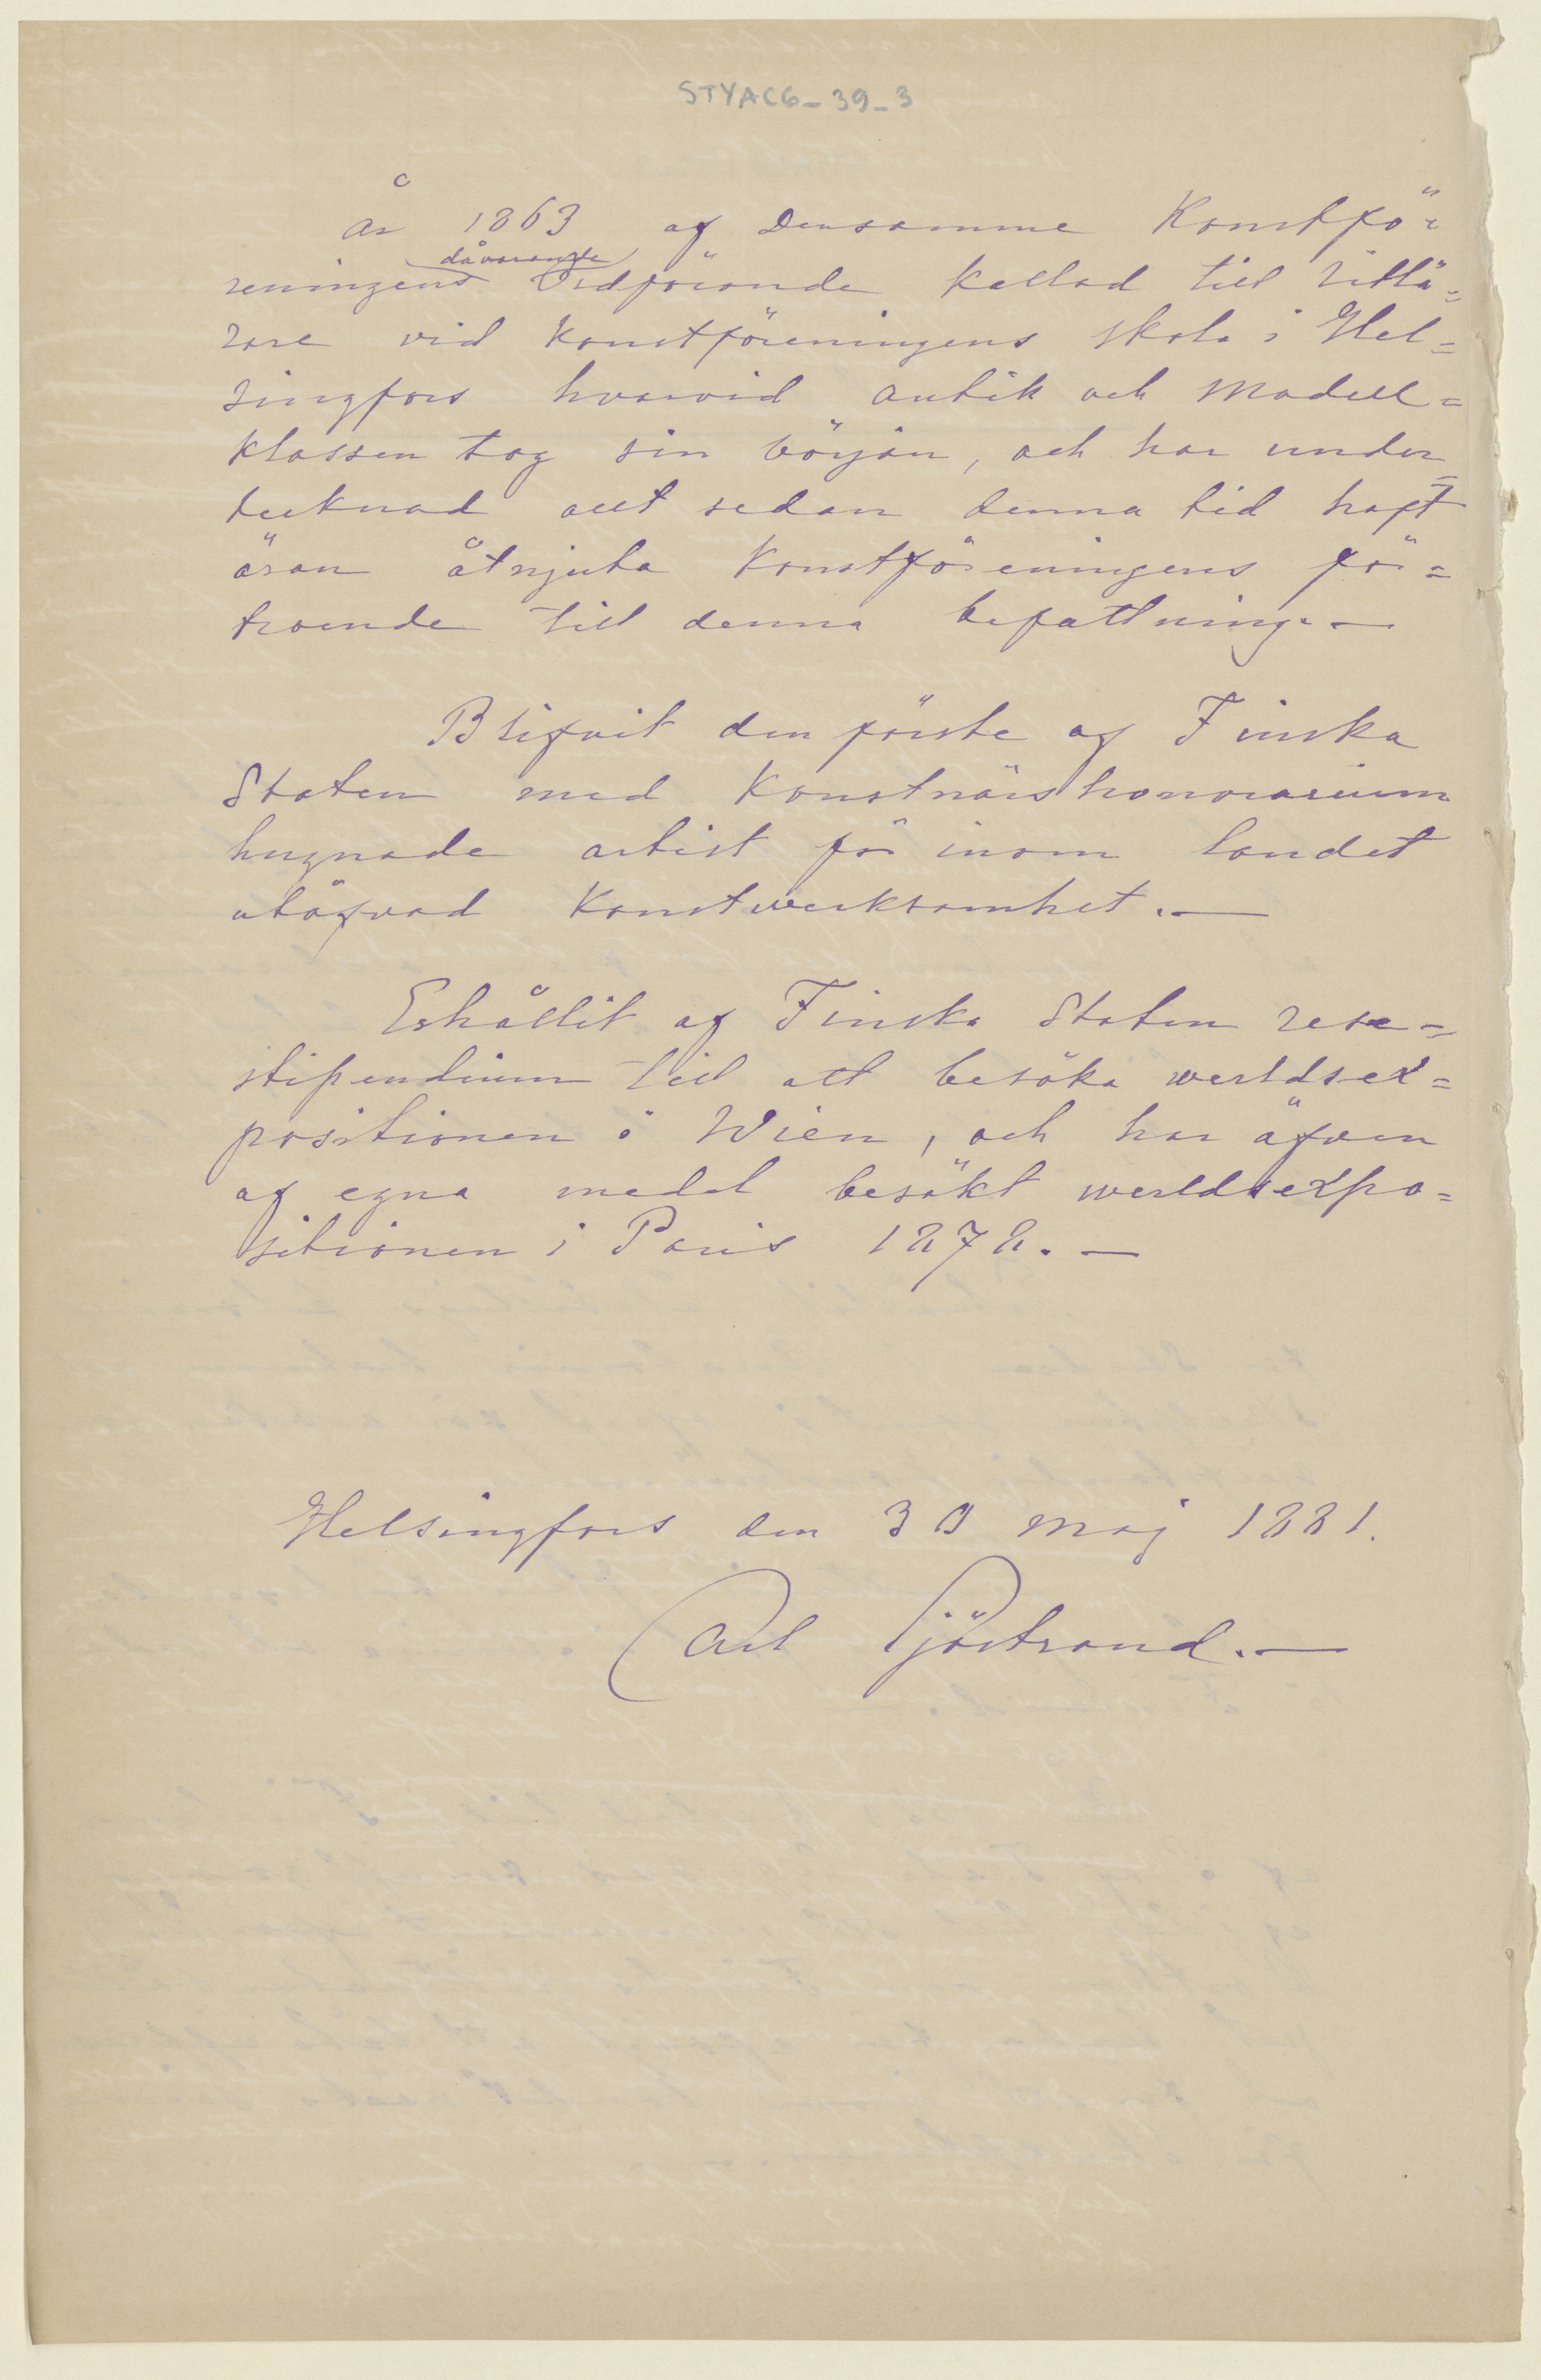 STYAC6-39-3
År 1863 af Densamme Konstfö=
dåvarande
reningens Ordförande kallad till Ritlä=
rare vid Konstföreningens skola i Hel=
singfors hvarvid antik och Modell=
klassen tog sin början, och har under=
tecknad allt sedan denna tid haft
äran åtnjuta Konstföreningens för=
troende till denna befattning.—
Blifvit den förste af Finska
Staten med Konstnärshonorarium
hugnade artist för inom landet
utöfvad Konstwerksamhet.—
Erhållit af Finska Staten rese=
stipendium till att besöka werldsex=
positionen i Wien, och har äfven
af egna medel besökt werldsexpo=
sitionen i Paris 1878.—
Helsingfors den 30 Maj 1881.
Carl Sjöstrand.—